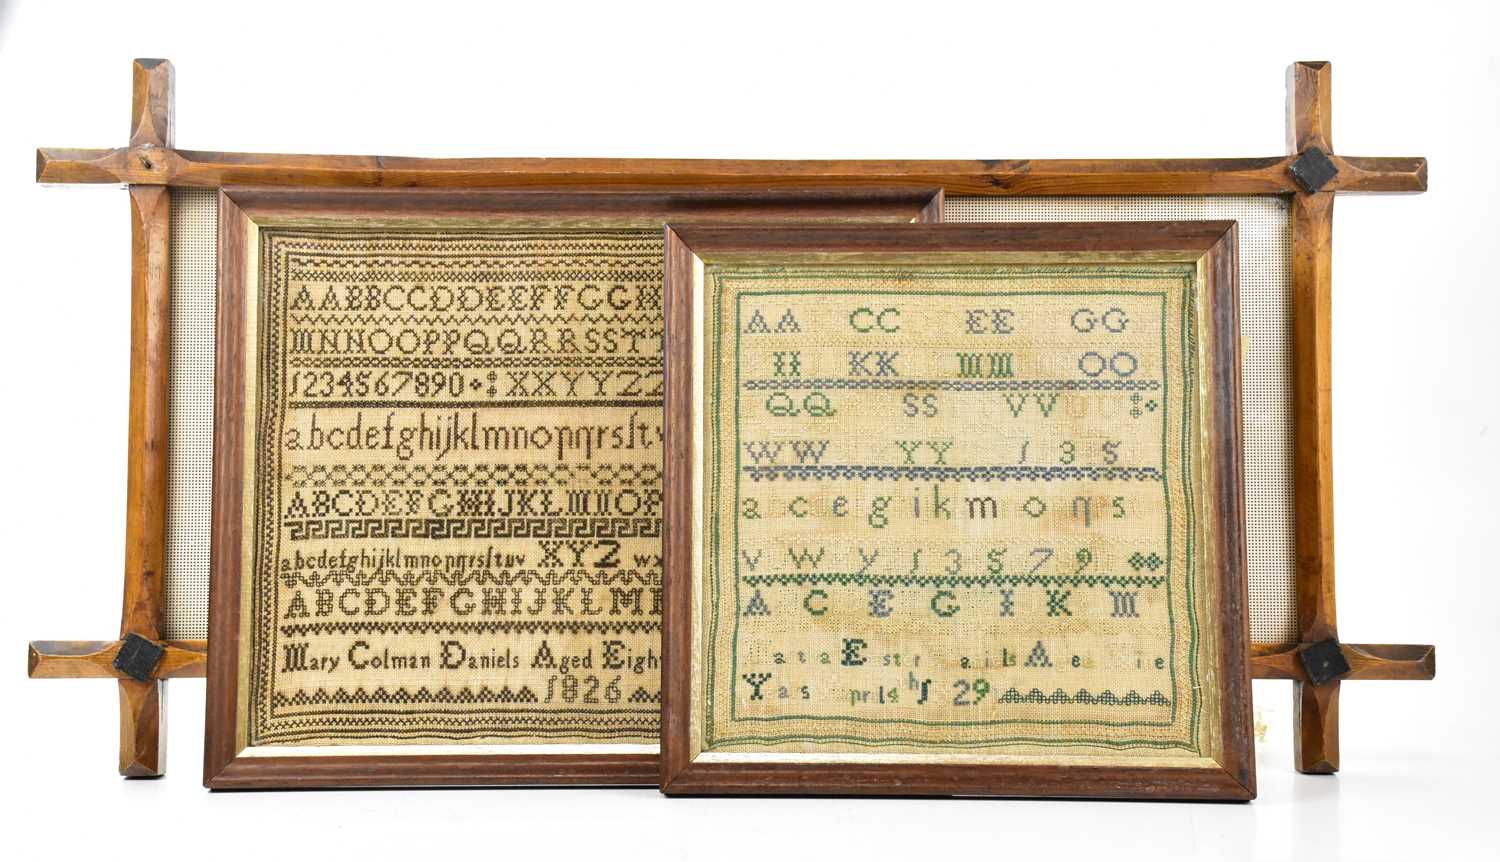 AABBCCDDEEFFGGH
MNNOOPPQQRRSSTT
1234567890 XXYYZZ
abcdefghijklmnopqrsſtv
ABCDEFGHIJKLMNOP
abcdefghijklmnopqrsſtuv XYZ wx
ABCDEFGHIJKLM
Mary Colman Daniels Aged Eigh
1826
AA CC EE GG
II KK MM OO
QQ SS VV
WW YY 135
a c e g i k m o q s
v w y 1 3 5 7 9
A C E G I K M